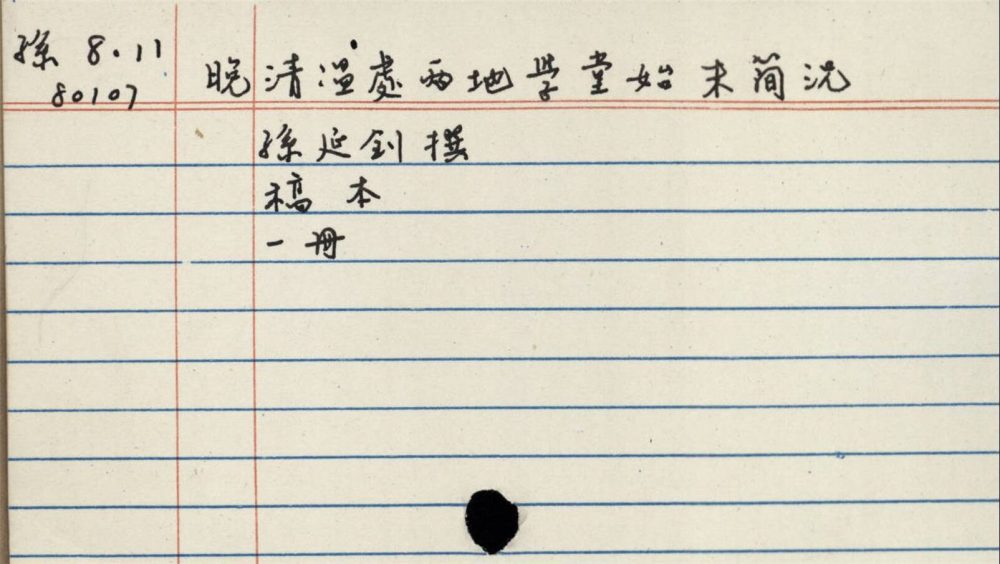 孫 8·11
80107
晚清溫處两地学堂始末简况
孫延釗撰
稿本
一冊